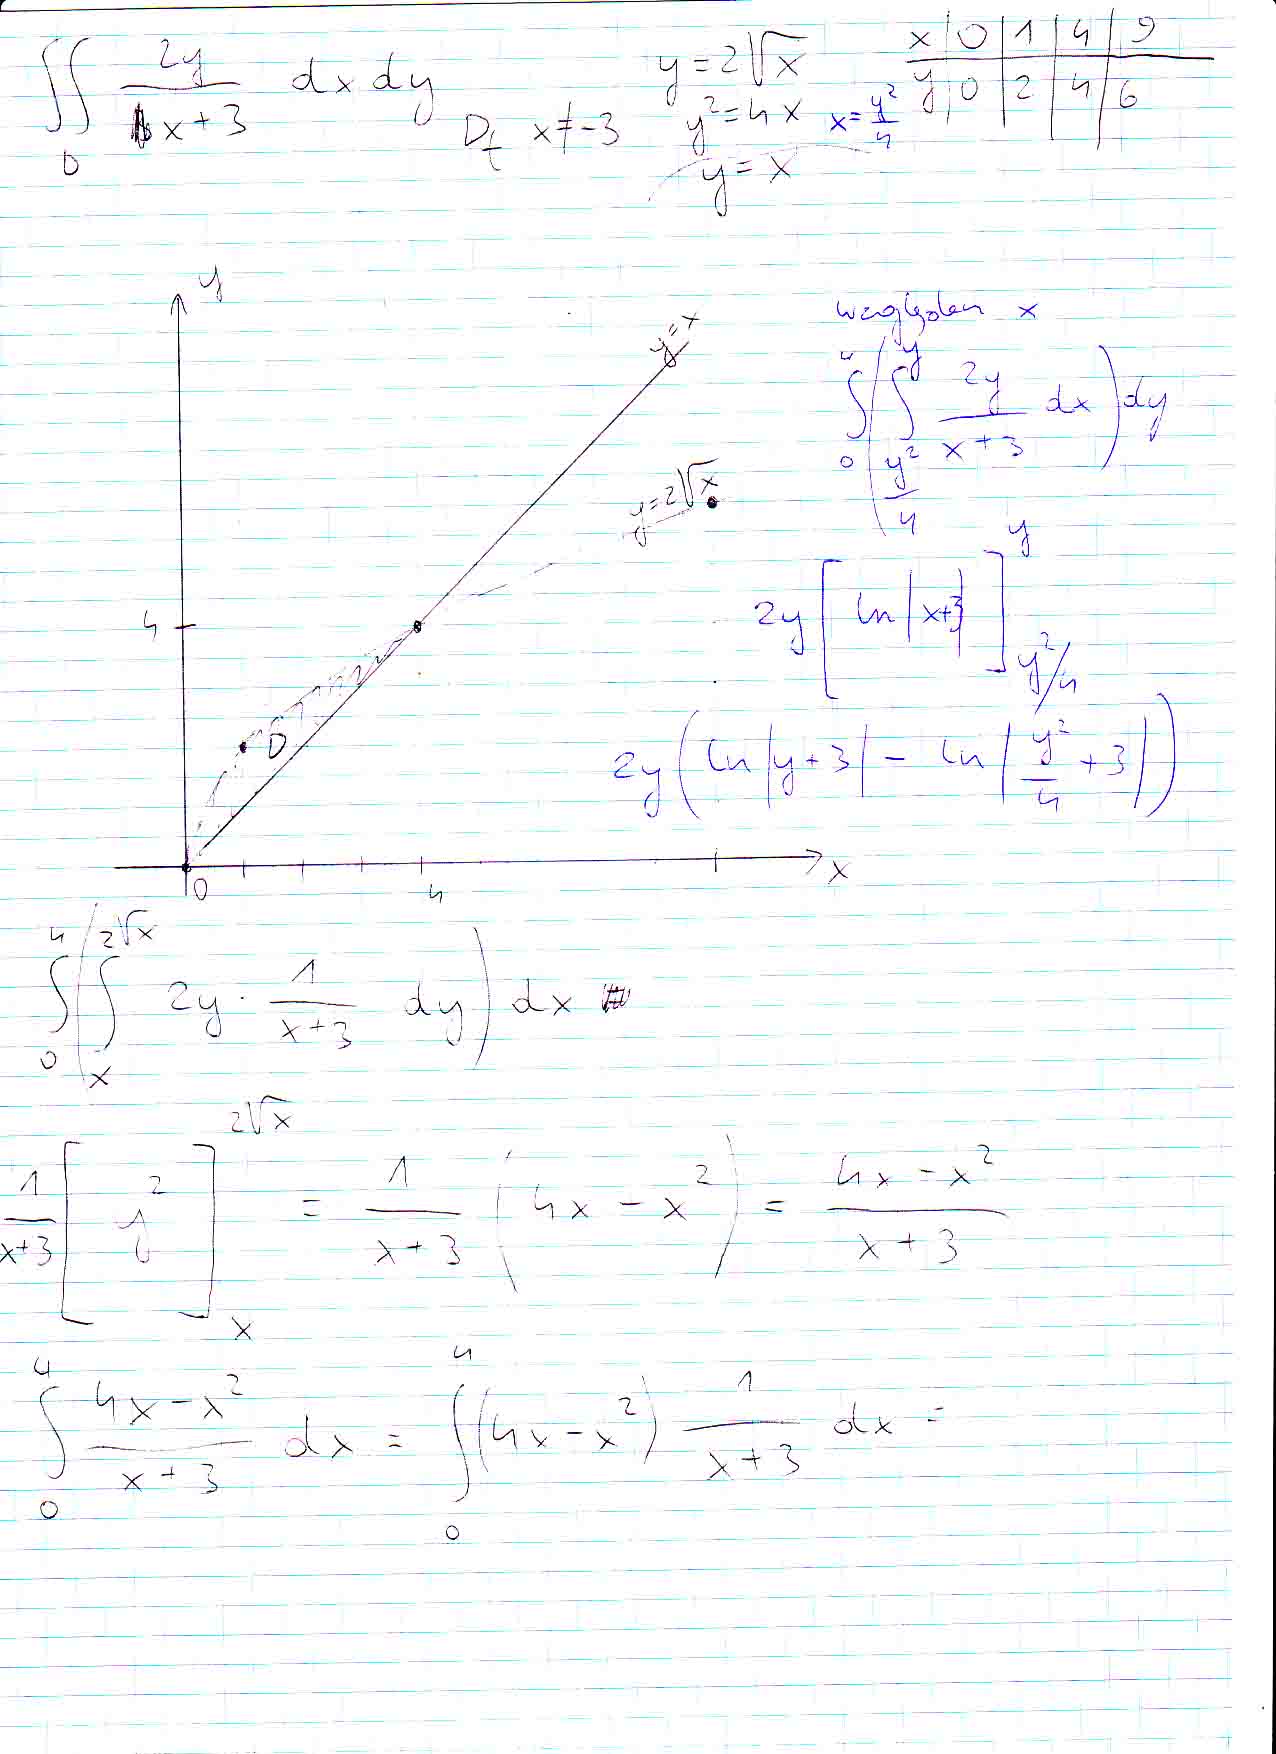 ∬ 2y/(x+3) dx dy
D
D_f x ≠ -3
y = 2√x
y² = 4x x = y²/4
y = x
x | 0 | 1 | 4 | 9
y | 0 | 2 | 4 | 6
y
y = x
y = 2√x
4
D
0 4 x
względem x
∫₀⁴ ( ∫_{y²/4}^{y} 2y/(x+3) dx ) dy
2y [ ln|x+3| ]_{y²/4}^{y}
2y ( ln|y+3| - ln|y²/4 + 3| )
∫₀⁴ ( ∫_{x}^{2√x} 2y · 1/(x+3) dy ) dx
1/(x+3) [ y² ]_{x}^{2√x} = 1/(x+3) ( 4x - x² ) = (4x - x²)/(x+3)
∫₀⁴ (4x - x²)/(x+3) dx = ∫₀⁴ (4x - x²) 1/(x+3) dx =